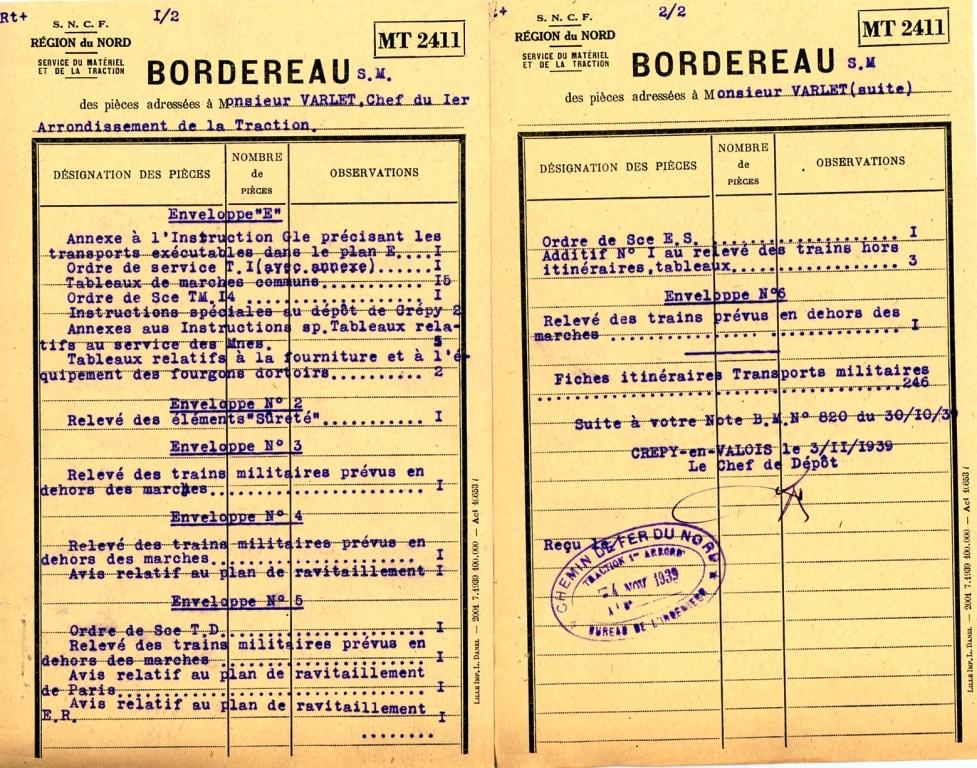 Rt+ I/2
S. N. C. F.
RÉGION du NORD
SERVICE DU MATÉRIEL
ET DE LA TRACTION
MT 2411
BORDEREAU S.M.
des pièces adressées à Monsieur VARLET,Chef du Ier
Arrondissement de la Traction.
DÉSIGNATION DES PIÈCES
NOMBRE
de
PIÈCES
OBSERVATIONS
Enveloppe"E"
Annexe à l'Instruction Gle précisant les
transports exécutables dans le plan E....I
Ordre de service T.I(avec annexe).......I
Tableaux de marches communs.............I5
Ordre de Sce TM.I4 .....................I
Instructions spéciales au dépôt de Crépy 2
Annexes aus Instructions sp.Tableaux rela-
tifs au service des Mnes. 5
Tableaux relatifs à la fourniture et à l'é-
quipement des fourgons dortoirs......... 2
Enveloppe N° 2
Relevé des éléments"Sûreté".............I
Enveloppe N° 3
Relevé des trains militaires prévus en
dehors des marches.......................I
Enveloppe N° 4
Relevé des trains militaires prévus en
dehors des marches.......................I
Avis relatif au plan de ravitaillement I
Enveloppe N° 5
Ordre de Sce T.D. ......................I
Relevé des trains militaires prévus en
dehors des marches ......................I
Avis relatif au plan de ravitaillement
de Paris.................................I
Avis relatif au plan de ravitaillement
E.R. I
........
LILLE IMP. L. DANEL. — 2001 7.1939 400.000 —
2/2
S. N. C. F.
RÉGION du NORD
SERVICE DU MATÉRIEL
ET DE LA TRACTION
MT 2411
BORDEREAU S.M
des pièces adressées à Monsieur VARLET(suite)
DÉSIGNATION DES PIÈCES
NOMBRE
de
PIÈCES
OBSERVATIONS
Ordre de Sce E.S. ......................I
Additif N° I au relevé des trains hors
itinéraires,tableaux................... 3
Enveloppe N°6
Relevé des trains prévus en dehors des
marches .................................I
Fiches itinéraires Transports militaires
........................................246
Suite à votre Note B.M.N° 820 du 30/10/39
CREPY-en-VALOIS le 3/II/1939
Le Chef de Dépôt
Reçu le
CHEMIN DE FER DU NORD
TRACTION 1er ARROND'
4 NOV 1939
BUREAU DE L'INGENIEUR
LILLE IMP. L. DANEL. — 2001 7.1939 400.000 —